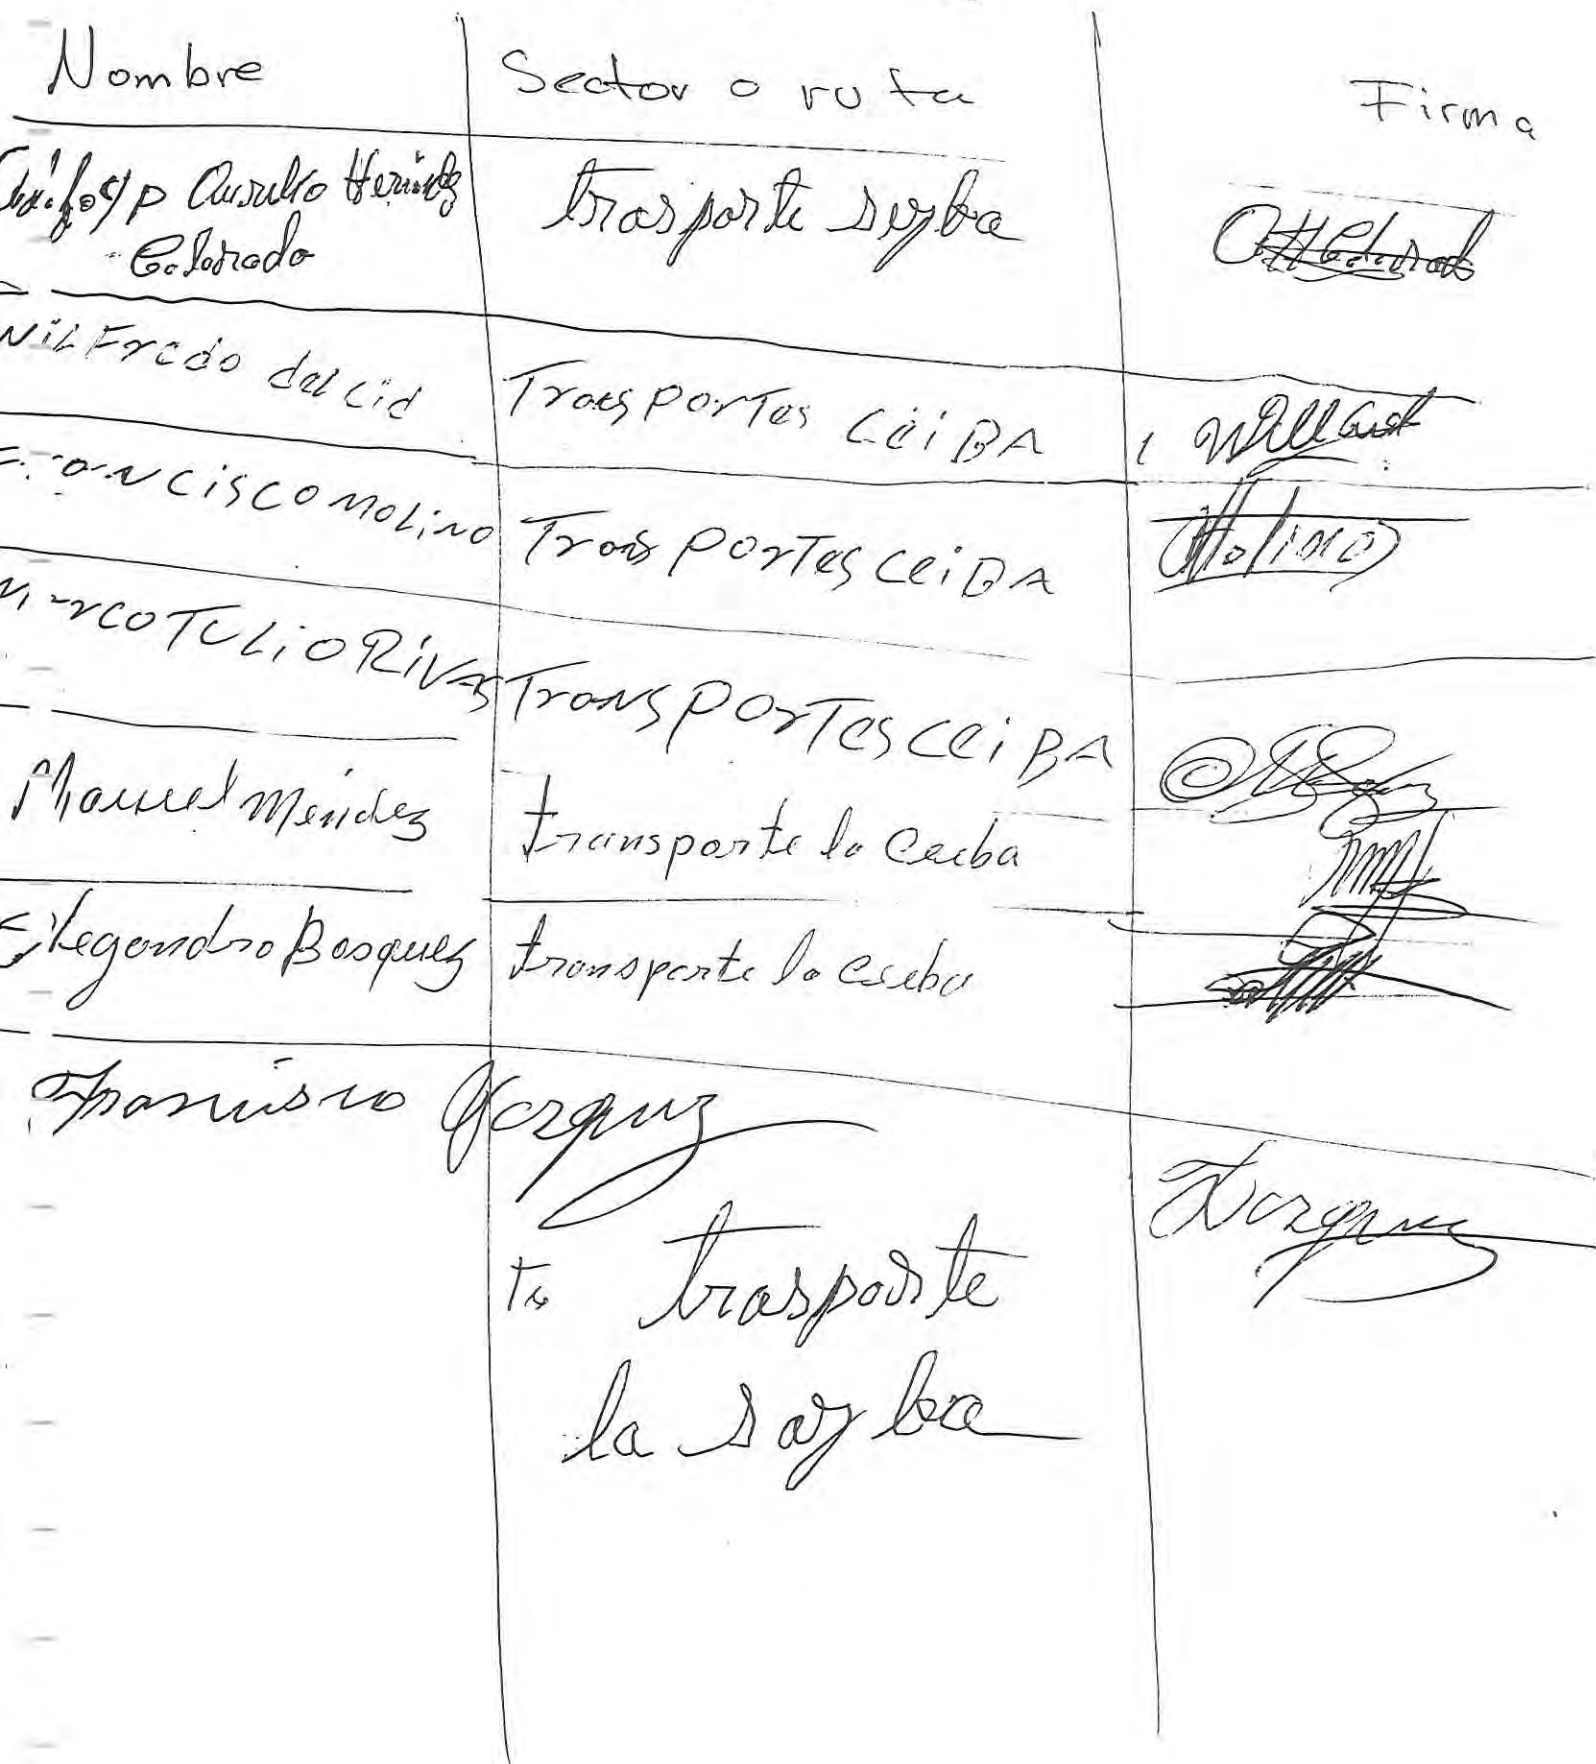 Nombre Sector o ruta Firma
Aurelio Hernández trasporte seyba
Colorado
Wilfredo del cid Trasportes CeiBA
Francisco Molino Trasportes CeiBA Molino
Marco TULio RivAs TransportesCeiBA
Manuel Méndez transporte la Ceeba
Elegandro Bosquez transporte la Ceseba
Francisco Vazquez Vazquez
Tr trasporte
la sayba